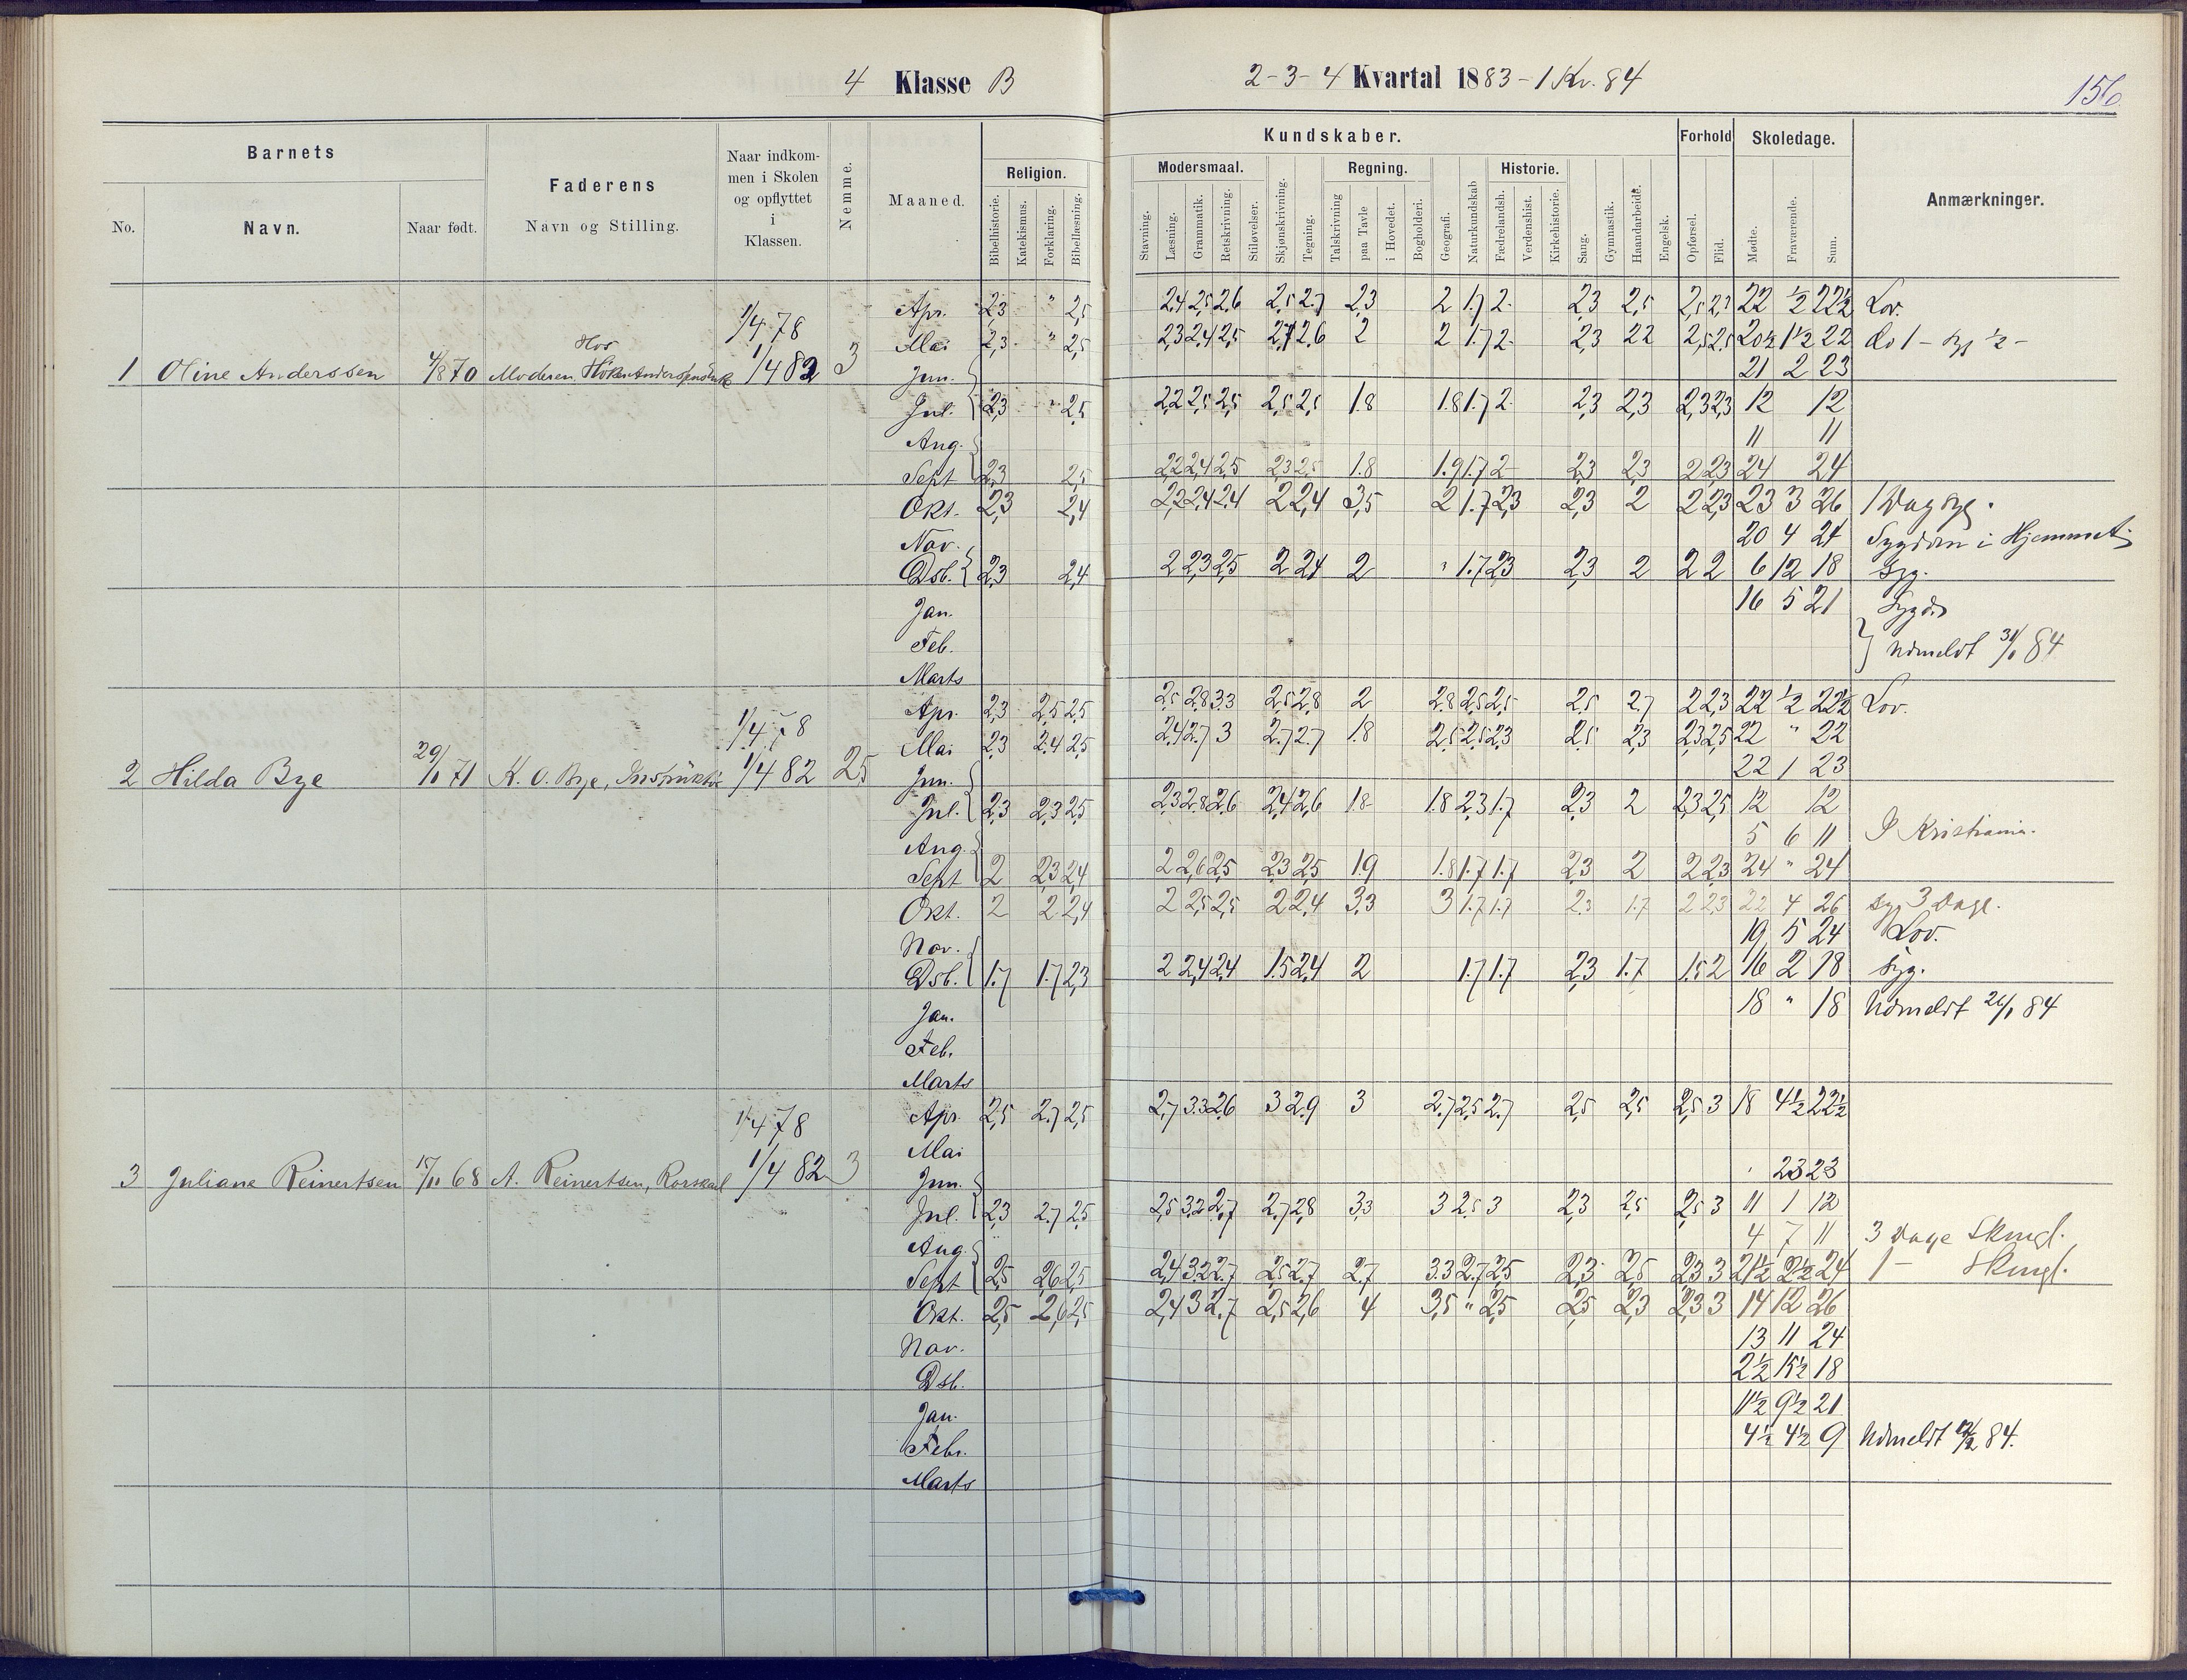 4 Klasse B
2-3-4 Kvartal 1883-1 Kv. 84
156
Barnets
Faderens
Naar indkommen i Skolen og opflyttet i Klassen.
Nemme.
Maaned.
Religion.
Kundskaber.
Forhold
Skoledage.
Anmærkninger.
No.
Navn.
Naar født.
Navn og Stilling.
Bibelhistorie.
Katekismus.
Forklaring.
Bibellæsning.
Modersmaal.
Stavning.
Læsning.
Grammatik.
Retskrivning.
Stiløvelser.
Skjønskrivning.
Tegning.
Regning.
Talskrivning
paa Tavle
i Hovedet.
Bogholderi.
Geografi.
Naturkundskab
Historie.
Fædrelandsh.
Verdenshist.
Kirkehistorie.
Sang.
Gymnastik.
Haandarbeide.
Engelsk.
Opførsel.
Flid.
Mødte.
Fraværende.
Sum.
Apr. 2,3 " 2,5 2,4 2,5 2,6 2,5 2.7 2,3 2 1.7 2 2,3 2,5 22 ½ 22½ Lov.
1/4 78
Mai 2,3 " 2,5 2,3 2,4 2,5 2,6 2 2 1.7 2 2,3 2,5 2,5 20½ 1½ 22
Hos
1 Oline Anderssen 4/8 70 Moderen 1/4 82 3 Jun. 21 2 23
Jul. 2,3 2,5 2,2 2,5 2,5 2,5 2,5 1.8 1.8 1.7 2 2,3 2,3 2,3 2,3 12 12
Aug. 11 11
Sept 2,3 2,5 2,2 2,4 2,5 2,3 2,5 1.8 1.9 1.7 2 2,3 2,3 2 2,3 24 24
Okt. 2,3 2,4 2,2 2,4 2,4 2 2,4 3,5 2 1.7 2,3 2,3 2 2 2,3 23 3 26 1 Dag syg.
Nov. 20 4 24 Sygdom i Hjemmet
Dsb. 2,3 2,4 2 2,3 2,5 2 2,4 2 " 1.7 2,3 2,3 2 2 2 6 12 18 Syg.
Jan. 16 5 21 Sygd.
Feb. Udmeldt 31/1 84
Marts
Apr. 2,3 2,5 2,5 2,5 2,8 3.3 2,5 2,8 2 2.8 2,5 2,5 2,5 2.7 2 2,3 22 ½ 22½ Lov.
1/4 78
Mai 2,3 2.4 2,5 2,4 2.7 3 2.7 2.7 1.8 2,5 2,5 2,3 2,5 2,3 2,3 2,5 22 " 22
2 Hilda Bye 29/1 71 K. O. Bye, Instruktør 1/4 82 2,5 Jun. 22 1 23
Jul. 2,3 2,3 2,5 2,3 2.8 2,6 2,4 2,6 1.8 1.8 2,3 1.7 2,3 2 2,3 2,5 12 12
Aug. 5 6 11 I Kristiania.
Sept 2 2,3 2,4 2 2,6 2,5 2,3 2,5 1.9 1.8 1.7 1.7 2,3 2 2 2,3 24 " 24
Okt. 2 2 2,4 2 2,5 2,5 2 2,4 3,3 3 1.7 1.7 2,3 1.7 2 2,3 22 4 26 syg 3 Dage.
Nov. 19 5 24 Lov.
Dsb. 1.7 1.7 2,3 2 2,4 2,4 1.5 2,4 2 1.7 1.7 2,3 1.7 1.5 2 16 2 18 Syg.
Jan. 18 " 18 Udmeldt 26/1 84
Feb.
Marts
Apr. 2,5 2.7 2,5 2.7 3.3 2,6 3 2.9 3 2.7 2,5 2.7 2,5 2,5 2,5 3 18 4½ 22½
1/4 78
Mai
3 Juliane Reinertsen 15/11 68 A. Reinertsen, Rorskarl 1/4 82 3 Jun. 23 23
Jul. 2,3 2.7 2,5 2,5 3.2 2.7 2.7 2.8 3,3 3 2,5 3 2,3 2,5 2,5 3 11 1 12
Aug. 4 7 11 3 Dage Skmgl.
Sept 2,5 2,6 2,5 2,4 3.2 2.7 2,5 2.7 2.7 3.3 2.7 2,5 2,3 2,5 2,3 3 21½ 2½ 24 1 - Skmgl.
Okt. 2,5 2,6 2,5 2,4 3 2.7 2,5 2,6 4 3,5 " 2,5 2,5 2,3 2,3 3 14 12 26
Nov. 13 11 24
Dsb. 2½ 15½ 18
Jan. 11½ 9½ 21
Febr. 4½ 4½ 9 Udmeldt 12/2 84.
Marts